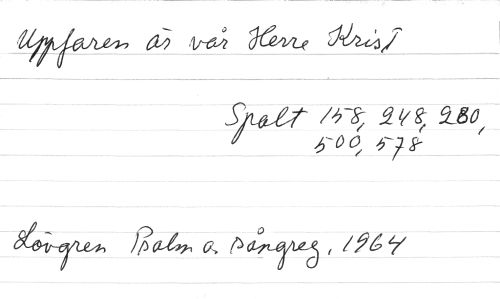 Uppfaren är vår Herre Krist
Spalt 158, 248, 280,
500, 578
Lövgren Psalm o. sångreg. 1964